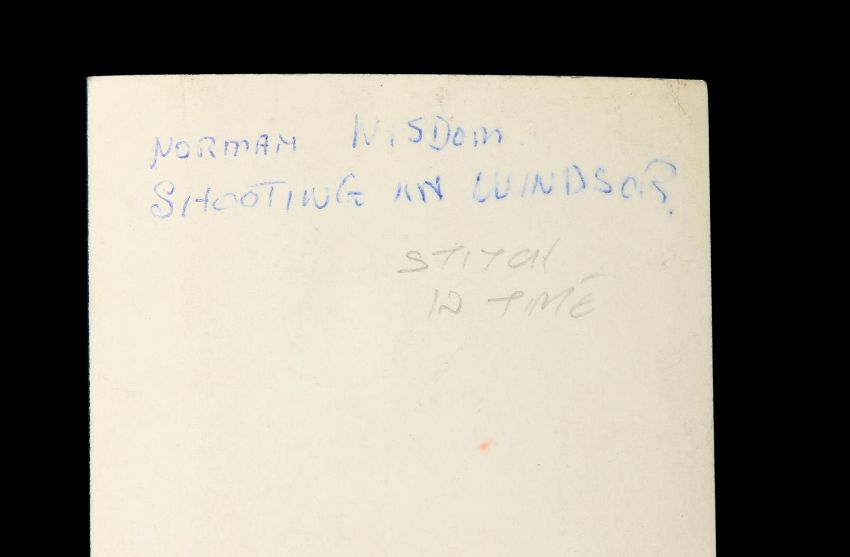 NORMAN WISDOM
SHOOTING IN WINDSOR.
STITCH
IN TIME